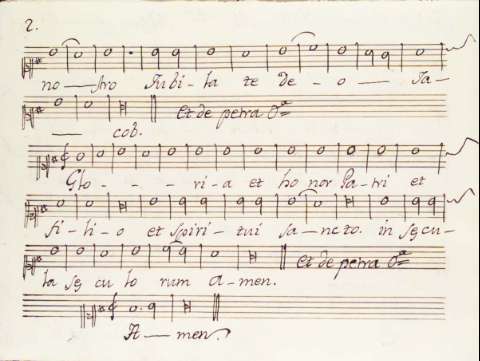 2.
no — stro Jubi- la te de - o — Ja-
— cob. Et de petra Oª
Glo- - - ri-a et ho nor Patri et
fi-li-o et Spiri-tui sa-ncto. in sęcu-
la sę cu lo rum a-men. et de petra Oª
A — men.